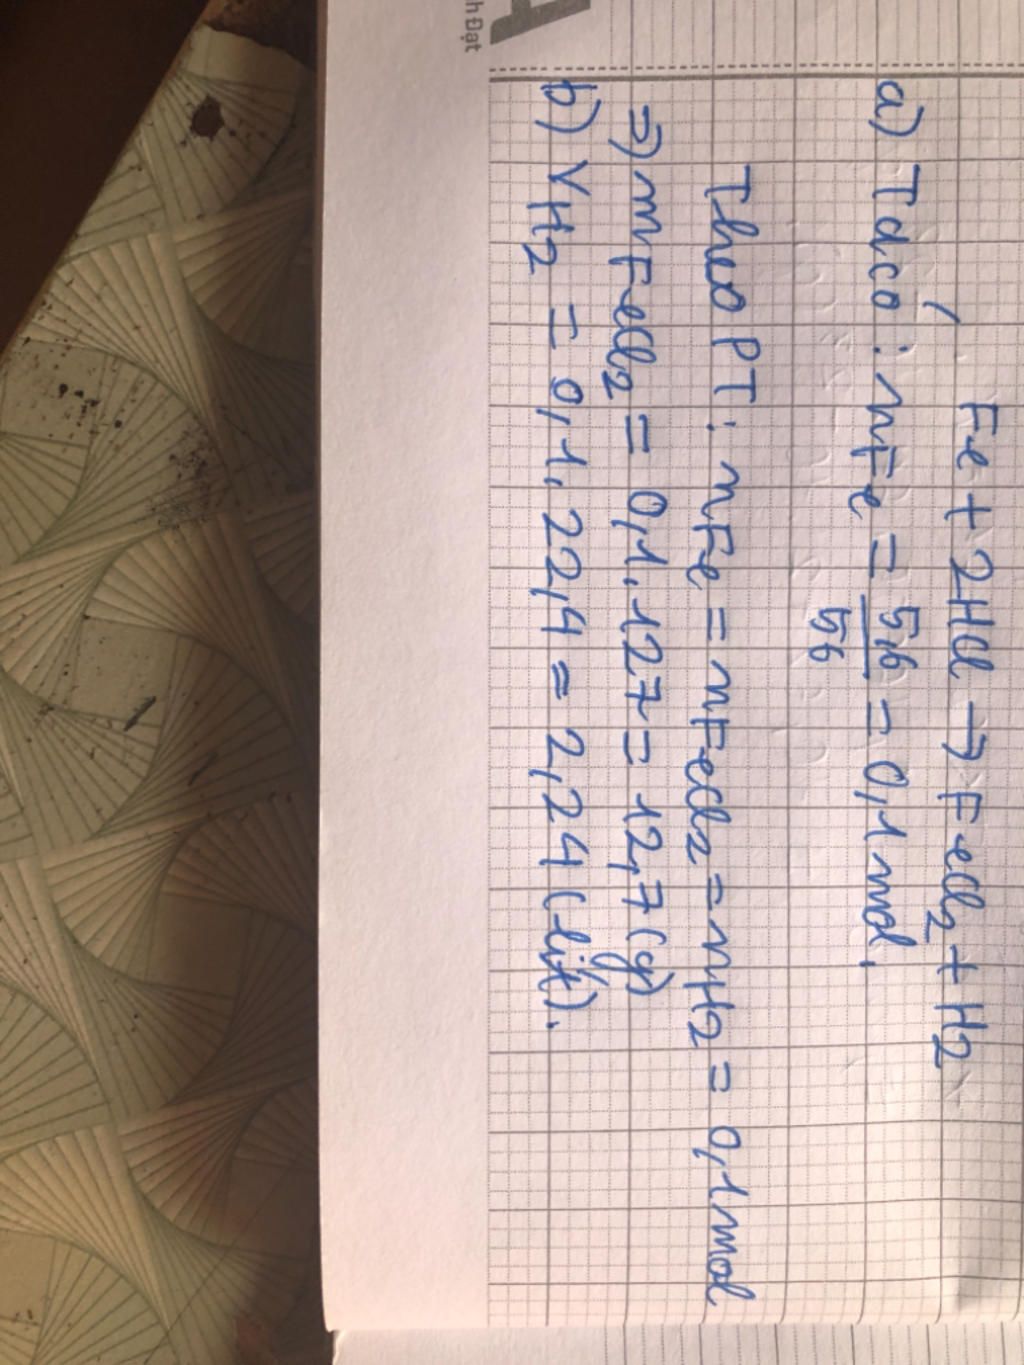 h Đạt
Fe + 2HCl → FeCl2 + H2
a) Tacó: nFe = 5,6/56 = 0,1 mol.
Theo PT: nFe = nFeCl2 = nH2 = 0,1 mol
=> mFeCl2 = 0,1.127 = 12,7 (g)
b) VH2 = 0,1.22,4 = 2,24 (lít).